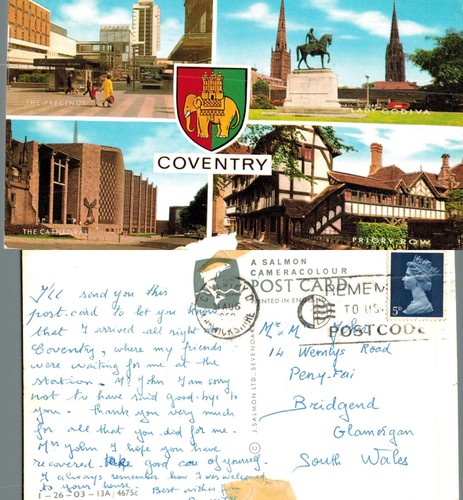 THE PRECINCT
GODIVA
COVENTRY
THE CATHEDRAL
PRIORY ROW
A SALMON
CAMERACOLOUR
POST CARD
PRINTED IN ENGLAND
REMEM
TO US
POSTCODE
5P
AUG
WARWICKSHIRE
J. SALMON LTD. SEVENOA
I'll send you this
post-card to let you know
that I arrived all right
Coventry, where my friends
were waiting for me at the
station. Mr John I am sorry
not to have said good-bye to
you - thank you very much
for all that you did for me.
Mrs John I hope you have
recovered take good care of yourself
I always remember how I was welcomed
to your house. Best wishes
1 - 26 - 03 - 13A / 4675c
Mr. & Mrs. John
14 Wernlys Road
Peny-Fai
Bridgend
Glamorgan
South Wales